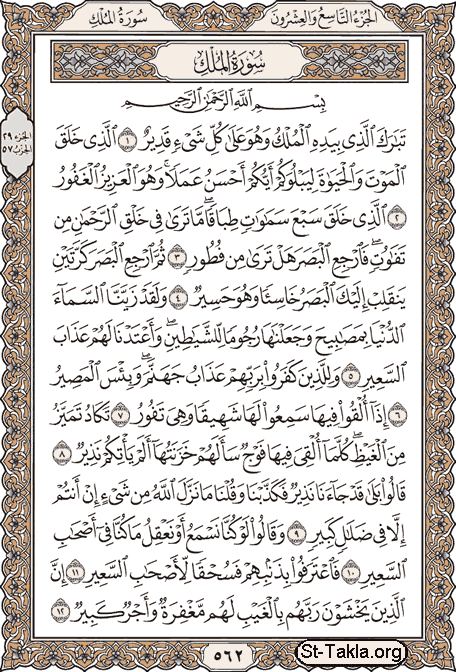 الجزء التاسع والعشرون سورة الملك
سُورَةُ المُلْكِ
بِسْمِ اللَّهِ الرَّحْمَٰنِ الرَّحِيمِ
الجزء ٢٩
الحزب ٥٧
تَبَٰرَكَ ٱلَّذِى بِيَدِهِ ٱلْمُلْكُ وَهُوَ عَلَىٰ كُلِّ شَىْءٍ قَدِيرٌ ١ ٱلَّذِى خَلَقَ
ٱلْمَوْتَ وَٱلْحَيَوٰةَ لِيَبْلُوَكُمْ أَيُّكُمْ أَحْسَنُ عَمَلًا ۚ وَهُوَ ٱلْعَزِيزُ ٱلْغَفُورُ
٢ ٱلَّذِى خَلَقَ سَبْعَ سَمَٰوَٰتٍ طِبَاقًا ۖ مَّا تَرَىٰ فِى خَلْقِ ٱلرَّحْمَٰنِ مِن
تَفَٰوُتٍ ۖ فَٱرْجِعِ ٱلْبَصَرَ هَلْ تَرَىٰ مِن فُطُورٍ ٣ ثُمَّ ٱرْجِعِ ٱلْبَصَرَ كَرَّتَيْنِ
يَنقَلِبْ إِلَيْكَ ٱلْبَصَرُ خَاسِئًا وَهُوَ حَسِيرٌ ٤ وَلَقَدْ زَيَّنَّا ٱلسَّمَآءَ
ٱلدُّنْيَا بِمَصَٰبِيحَ وَجَعَلْنَٰهَا رُجُومًا لِّلشَّيَٰطِينِ ۖ وَأَعْتَدْنَا لَهُمْ عَذَابَ
ٱلسَّعِيرِ ٥ وَلِلَّذِينَ كَفَرُوا۟ بِرَبِّهِمْ عَذَابُ جَهَنَّمَ ۖ وَبِئْسَ ٱلْمَصِيرُ
٦ إِذَآ أُلْقُوا۟ فِيهَا سَمِعُوا۟ لَهَا شَهِيقًا وَهِىَ تَفُورُ ٧ تَكَادُ تَمَيَّزُ
مِنَ ٱلْغَيْظِ ۖ كُلَّمَآ أُلْقِىَ فِيهَا فَوْجٌ سَأَلَهُمْ خَزَنَتُهَآ أَلَمْ يَأْتِكُمْ نَذِيرٌ ٨
قَالُوا۟ بَلَىٰ قَدْ جَآءَنَا نَذِيرٌ فَكَذَّبْنَا وَقُلْنَا مَا نَزَّلَ ٱللَّهُ مِن شَىْءٍ إِنْ أَنتُمْ
إِلَّا فِى ضَلَٰلٍ كَبِيرٍ ٩ وَقَالُوا۟ لَوْ كُنَّا نَسْمَعُ أَوْ نَعْقِلُ مَا كُنَّا فِىٓ أَصْحَٰبِ
ٱلسَّعِيرِ ١٠ فَٱعْتَرَفُوا۟ بِذَنۢبِهِمْ فَسُحْقًا لِّأَصْحَٰبِ ٱلسَّعِيرِ ١١ إِنَّ
ٱلَّذِينَ يَخْشَوْنَ رَبَّهُم بِٱلْغَيْبِ لَهُم مَّغْفِرَةٌ وَأَجْرٌ كَبِيرٌ ١٢
٥٦٢
St-Takla.org